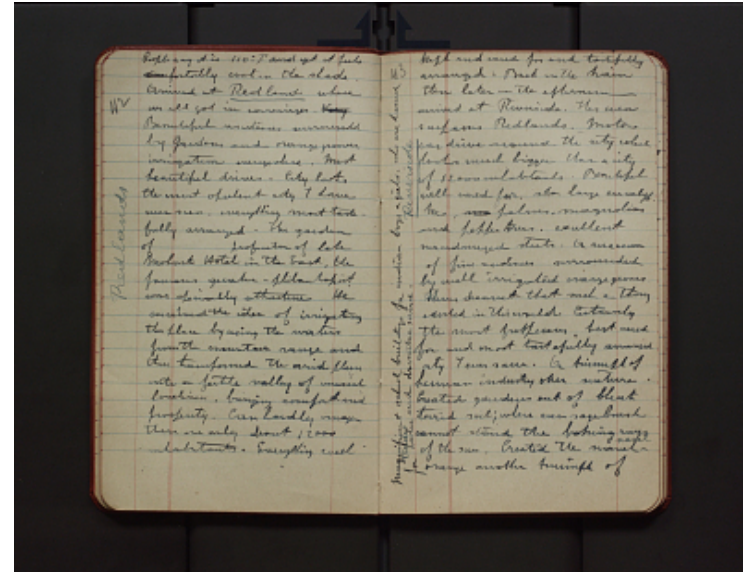 112
Redlands
it is 110° F and yet it feels
comfortably cool in the shade.
Arrived at Redlands where
we all got in carriages.
Beautiful mansions surrounded
by gardens and orange groves
irrigation everywhere. Most
beautiful drives. City looks
the most opulent city I have
ever seen, everything most taste-
fully arranged. The garden
of proprietor of late
Mohonk Hotel in the East, the
famous quaker-philanthropist
was specially attractive. He
conceived the idea of irrigating
the place by using the waters
from the mountain range and
thus transformed the arid plain
into a fertile valley of unusual
loveliness, bringing comfort and
prosperity. Can hardly imagine
there are only about 12000
inhabitants. Everything well
113
Riverside
Magnificent school buildings for indian boys & girls, who are housed
kept and cared for and tastefully
arranged. Back in the train
then later in the afternoon
arrived at Riverside. This even
surpasses Redlands. Motor
car drive around the city which
looks much bigger than a city
of 12000 inhabitants. Beautiful
well cared for, also large eucalypt
trees, palms, magnolias
and pepper trees. excellent
macadamized streets. A succession
of fine gardens surrounded
by well irrigated orange groves
Never dreamt that such a thing
existed in the world. Certainly
the most prosperous, best cared
for and most tastefully arranged
city I ever saw. A triumph of
human industry over nature.
Created gardens out of bleak
torrid soil, where even sagebrush
cannot stand the baking rays
of the sun. Created the navel
orange another triumph of